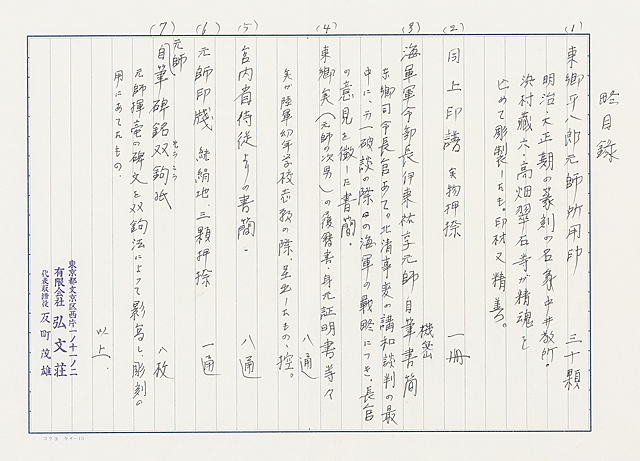 略目録
(1) 東郷平八郎元師所用印 三十顆
明治大正期の篆刻の名家中井敬所・
浜村蔵六・高畑翠石等が精魂を
こめて彫製したも印材又精善。
(2) 同上印譜 実物押捺 一冊
(3) 海軍軍令部長伊東祐亨元師自筆書簡 機密
東郷司令長官あて。北清事変の講和談判の最
中に、万一破談の際の日の海軍の戦略につき、長官
の意見を徴した書簡。
(4) 東郷実(元師の次男)の履歴書・身元証明書等々 八通
実が陸軍幼年学校志願の際、呈出したもの、控。
(5) 宮内省侍従よりの書簡・ 八通
(6) 元師印牋 絖絹地三顆押捺 一通
(7) 元師自筆碑銘双鉤紙 八枚
そうこう
元師揮毫の碑文を双鉤法によって影写し、彫刻の
用にあてたもの。
以上.
東京都文京区西片一ノ十一ノ二
有限会社 弘文荘
代表取締役 反町茂雄
コクヨ